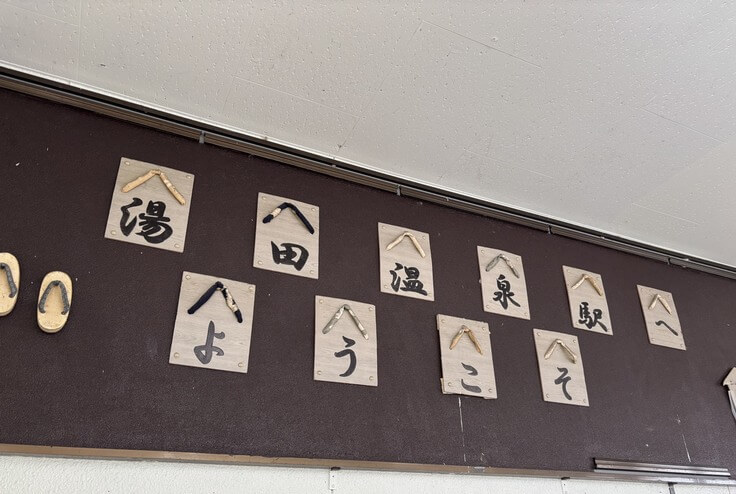 湯田温泉駅へ
ようこそ